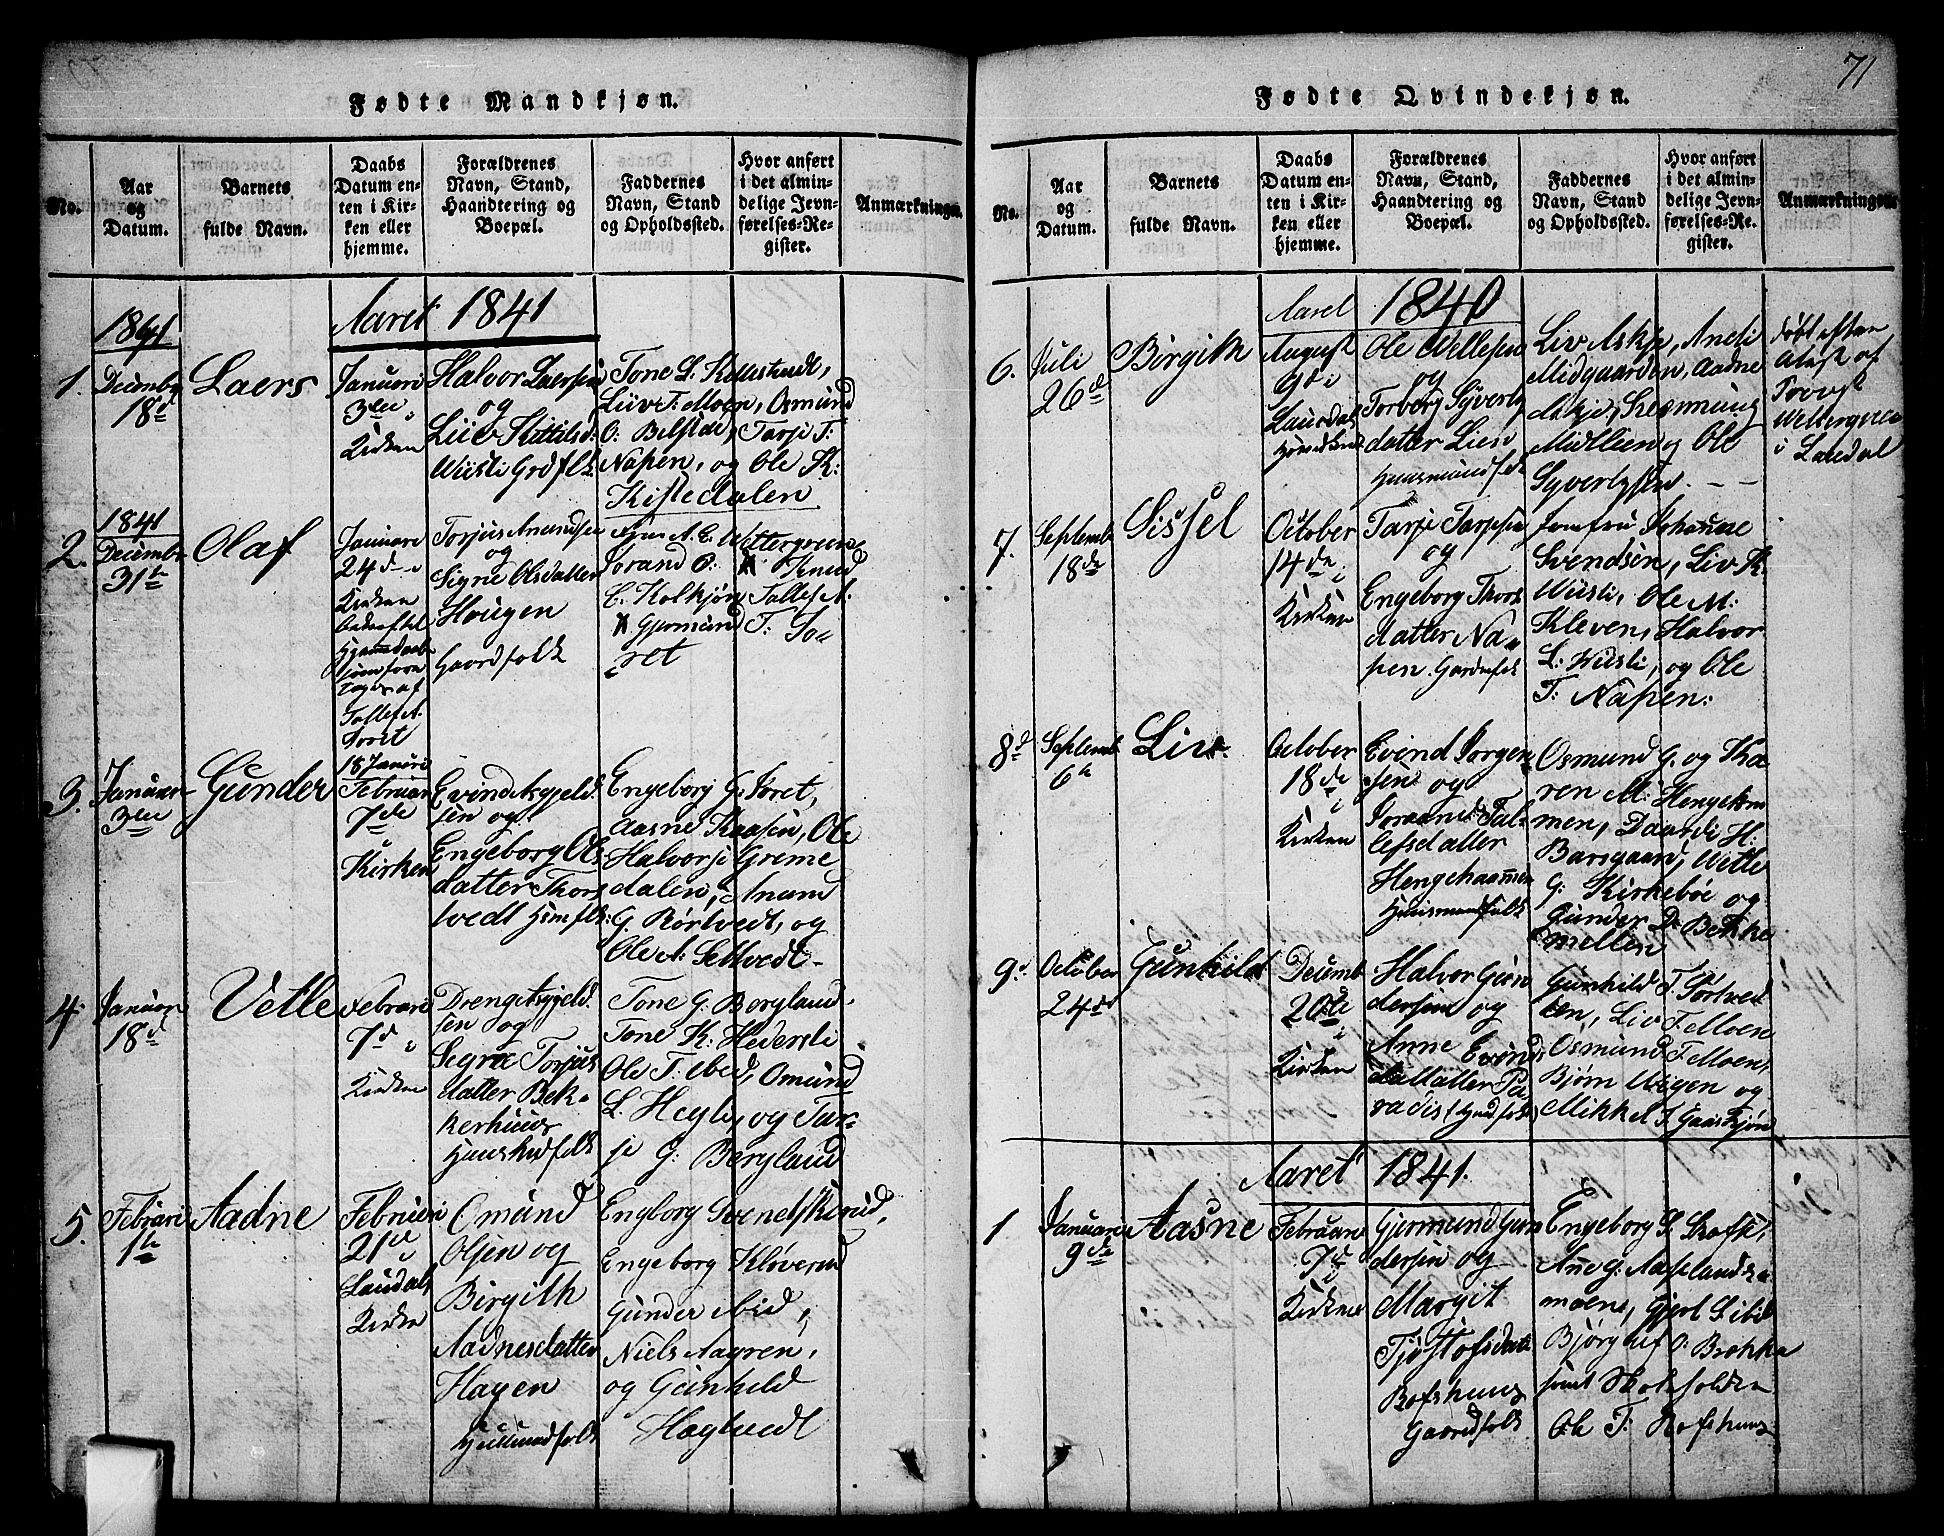 71
Fødte Mandkjøn.
No.
Aar
og
Datum.
Barnets
fulde Navn.
Daabs
Datum en-
ten i Kir-
ken eller
hjemme.
Forældrenes
Navn, Stand,
Haandtering og
Boepæl.
Faddernes
Navn, Stand
og Opholdssted.
Hvor anført
i det almin-
delige Jevn-
førelses-Re-
gister.
Anmærkninger.
Aaret 1841
1841
1.
Decembr
18d
Laers
Januari
3die
Kirken
Halvor Laersen
og
Liv Kittilsd:
Wiisli Grdflk
Tone L. Killestadt,
Liiv T. Moen, Osmund
O: Belstde, Tarje T:
Napen, og Ole K:
Kistedalen
1841
2.
Decembr
31te
Olaf
Januari
24d
Kirken
Torjus Amundsen
og
Signe Olsdatter
Hougen
Gaardfolk
Jorand O:
Knud
Kolkjøn Tallef A:
Gjermund T: So-
ret
Tallef A.
Soret
18 Januari
3.
Januar
3die
Gunder
Februar
7de
Kirken
Evind Asgjeld
sen og
Engeborg Ols
datter Thors
tvedt
Engeborg G. Soret,
Aasne Kaasen, Ole
Halvorsi Greme
dalen, Anund
G. Rørtvedt, og
Ole A:
4.
Januar
18d
Vetle
Febrari
7d
Kirken
Dreng Asgjeld
sen og
Segne Torjus
datter Bek-
kerhuus
Huusmdfolk
Tone G. Bergland
Tone K: Hedersli
Ole T: Ibed, Omund
L. Hegle, og Tar-
je G: Bergland
5.
Febrari
1te
Aadne
Februari
21de
Laudals
Kirken
Omund
Olsen og
Birgith
Aadnesdatter
Hagen
Huusmdfolk
Engborg Svends
Engeborg Kløverud
Gunder
Niels Aagren,
og Gunhild
Hagtvedt
Fødte Qvindekjøn.
No.
Aar
og
Datum.
Barnets
fulde Navn.
Daabs
Datum en-
ten i Kir-
ken eller
hjemme.
Forældrenes
Navn, Stand,
Haandtering og
Boepæl.
Faddernes
Navn, Stand
og Opholdssted.
Hvor anført
i det almin-
delige Jevn-
førelses-Re-
gister.
Anmærkninger
Aaret 1840
6.
Juli
26de
Birgith
August
9d i
Laurdals
Ole Tellefsen
og
Torberg Syverts
datter Liesi
Huusmandsfolk
Liv Askje, Andi
Midgaarden, Aadne
Askje,
og Ole
Syvertsen
døbt efter
af
Provst
i Laudal
7.
Septemb
18de
Sissel
October
14de i
Kirken
Tarje Tarjesen
og
Engeborg Thors
datter Na-
pen. Gardmfolk
Jomfru Johanne
Svendsen, Liv K.
Wiisli, Ole M:
Kleven, Halvor
L: Wiisli, og Ole
T: Napen:
8d
Septemb
6te
Liv
October
18de
i
Kirken
Evind Jørgen
sen og
Joraand Tal
lefsdatter
Hengehaammen
Huusmandfolk
Osmund G. og Ka
ren M: Hengehm
men, Daardi H.
Barsgaard, Wetle
G: Kirkebøe og
Gunder D: Bekke
9d
October
24de
Gunhild
Decemb
20de
i
Kirken
Halvor Gun
dersen og
Anne Evind
datter Pa
radis Grdfolk
Gunhild T. Tortved
ten, Liv T. Moen
Osmund T. Moen,
Bjørn Wigen og
Mikkel T. Gaaskjøn
Aaret 1841.
1
Januari
9de
Aasne
Februari
7d
i
Kirken
Gjermund Gun
dersen og
Margit
Tjostofsdatt
Rofshuus
Gaardfolk
Engeborg
Anne G. Aaselandsk
moene, Gjert
O: Brøkke
samt
Ole T: Rofshuus